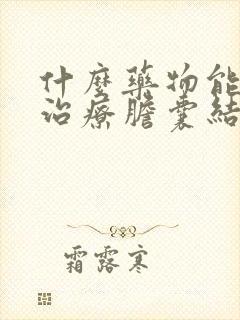 什麼藥物能
治療膽囊結
霜露寒